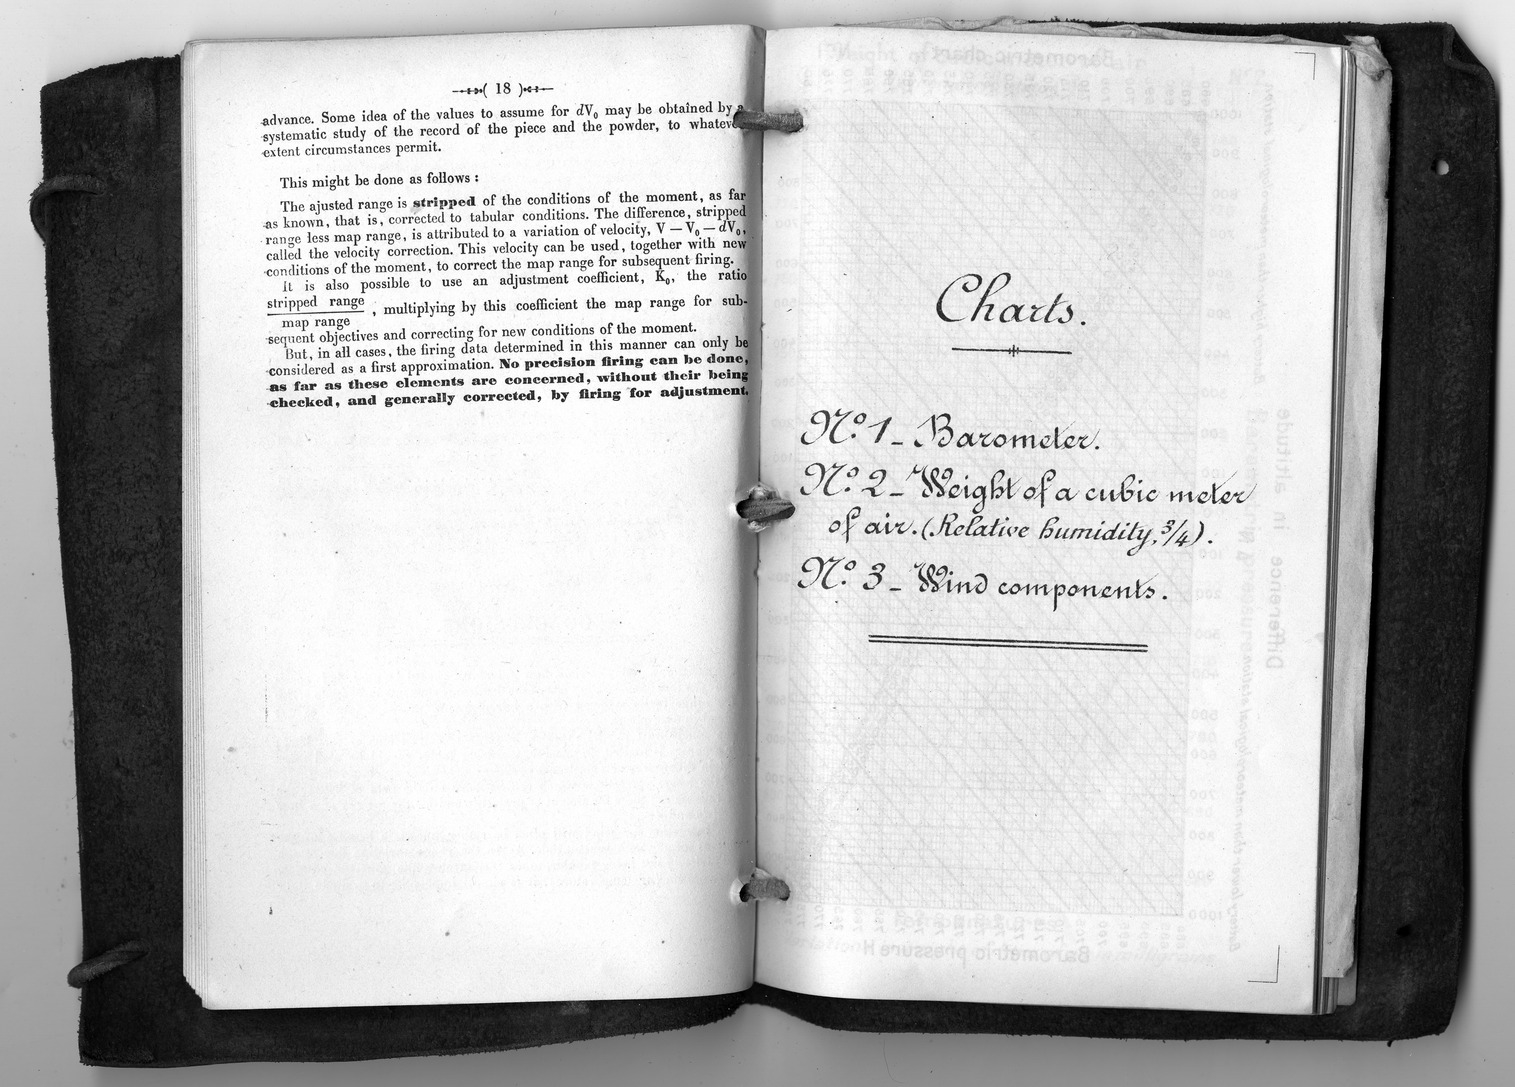 ( 18 )
advance. Some idea of the values to assume for dV₀ may be obtained by a
systematic study of the record of the piece and the powder, to whatever
extent circumstances permit.
This might be done as follows :
The ajusted range is stripped of the conditions of the moment, as far
as known, that is, corrected to tabular conditions. The difference, stripped
range less map range, is attributed to a variation of velocity, V — V₀ — dV₀,
called the velocity correction. This velocity can be used, together with new
conditions of the moment, to correct the map range for subsequent firing.
It is also possible to use an adjustment coefficient, K₀, the ratio
stripped range
map range
, multiplying by this coefficient the map range for sub-
sequent objectives and correcting for new conditions of the moment.
But, in all cases, the firing data determined in this manner can only be
considered as a first approximation. No precision firing can be done,
as far as these elements are concerned, without their being
checked, and generally corrected, by firing for adjustment.
Charts.
Nº 1 - Barometer.
Nº 2 - Weight of a cubic meter
of air. (Relative humidity, 3/4).
Nº 3 - Wind components.
Barometric chart
Difference in altitude
Barometric pressure H